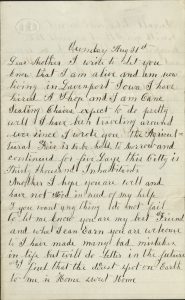 Dear Mother I write to let you
know that I am alive and am now
living in Davenport Iowa I have
hired A Shop and I am Cane
Seating Chairs expect to do pretty
well I have ben traveling around
ever since I wrote you The Agricul-
tural Fair is to be held to morrow and
continues for five Days this Citty is
thirty thousand Inhabitants
Mother I hope you are well and
have not stood in need of my help
if you want any thing do not fail
to let me know you are my best Friend
and what I can Earn you are welcome
to I have made many bad mistakes
in life but will do better in the future
I find that the dearest spot on Earth
to me is Home sweet Home